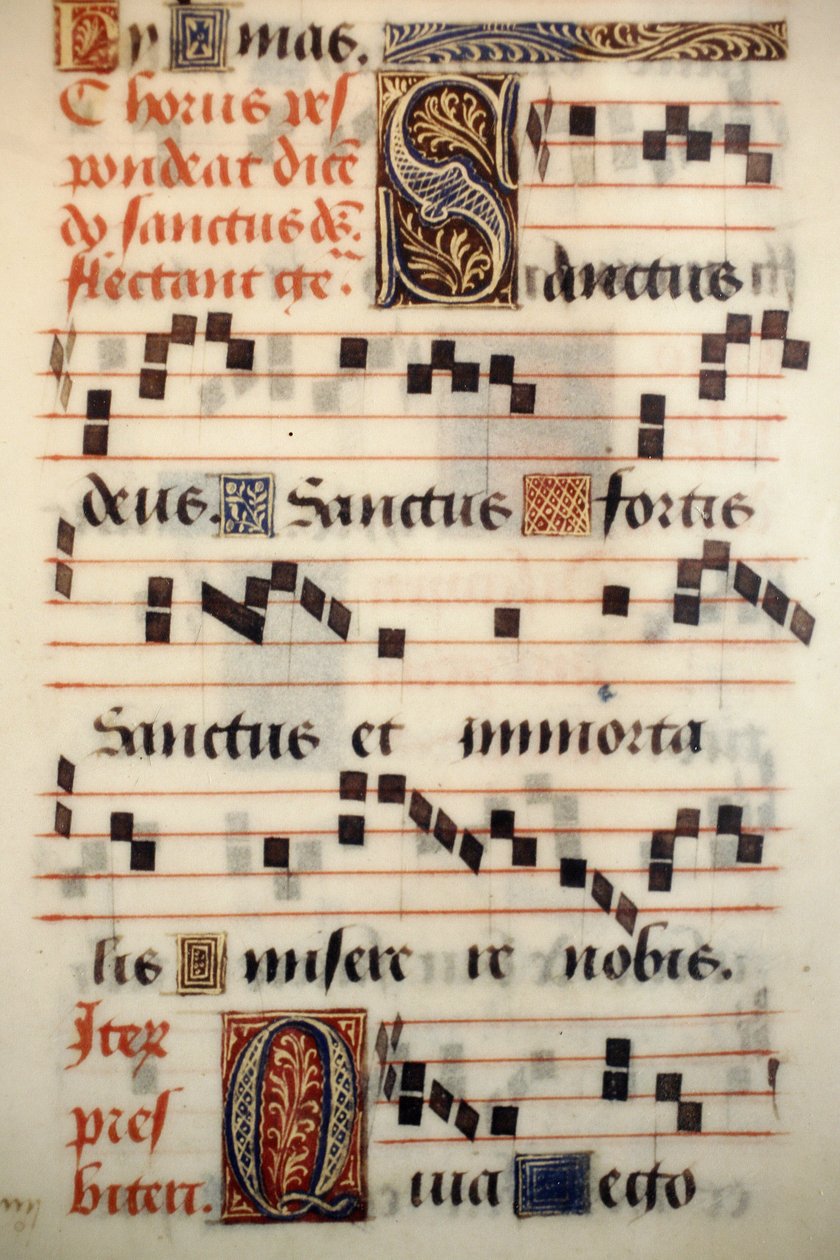 y mas.
Chorus res
pondeat dicē
do sanctus ds̄.
flectant ge.
Sanctus
deus. Sanctus fortis
Sanctus et immorta
lis misere re nobis.
Iteꝝ
pres
biteri.
Quia ego